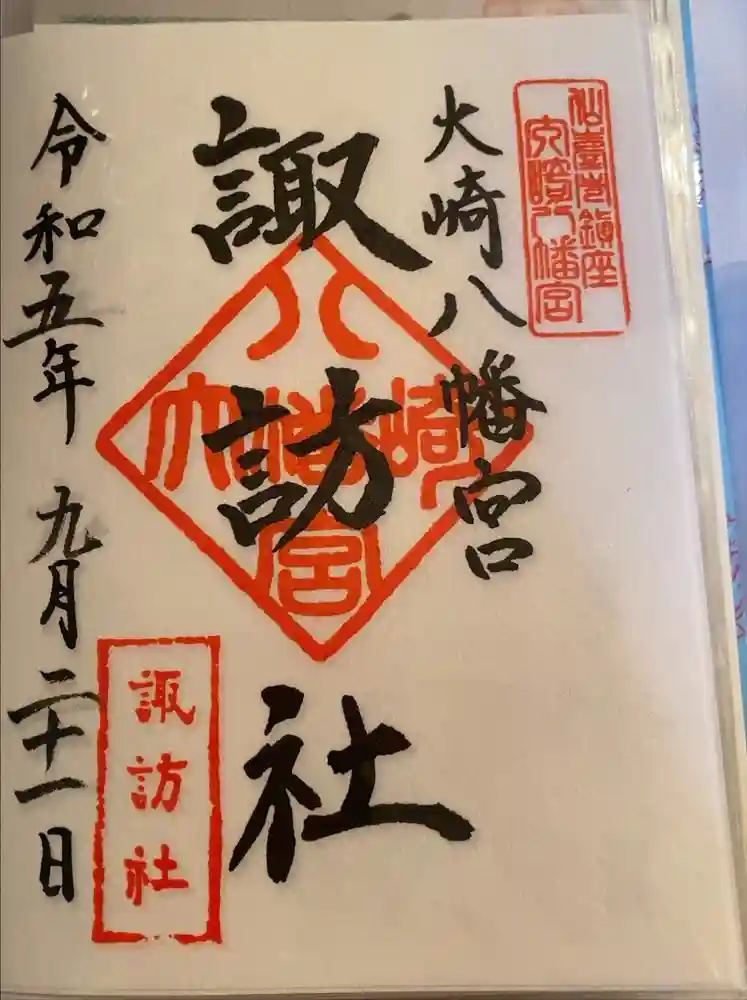 仙臺市鎮座
大崎八幡宮
大崎八幡宮
諏訪社
八幡宮
大崎
諏訪社
令和五年 九月二十一日